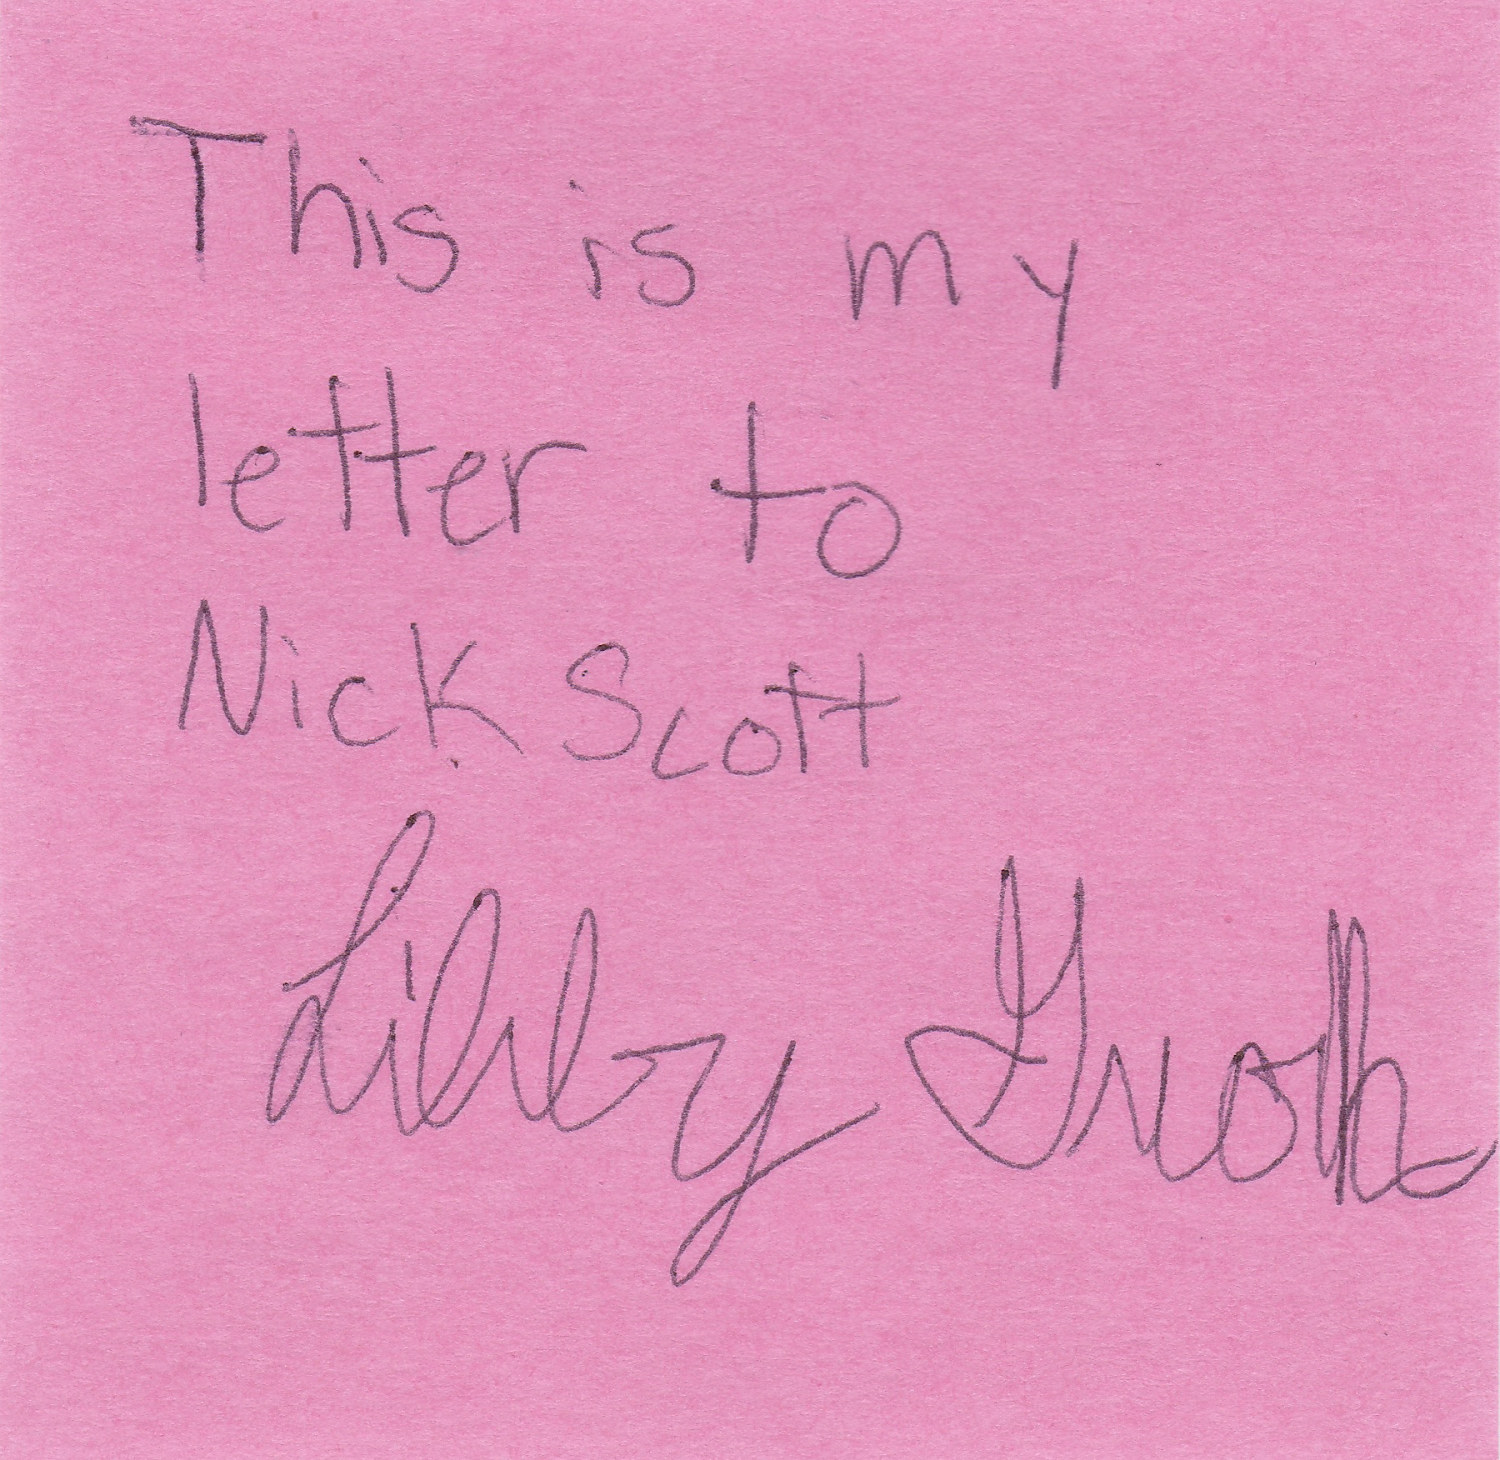 This is my
letter to
Nick Scott
Libby Groth